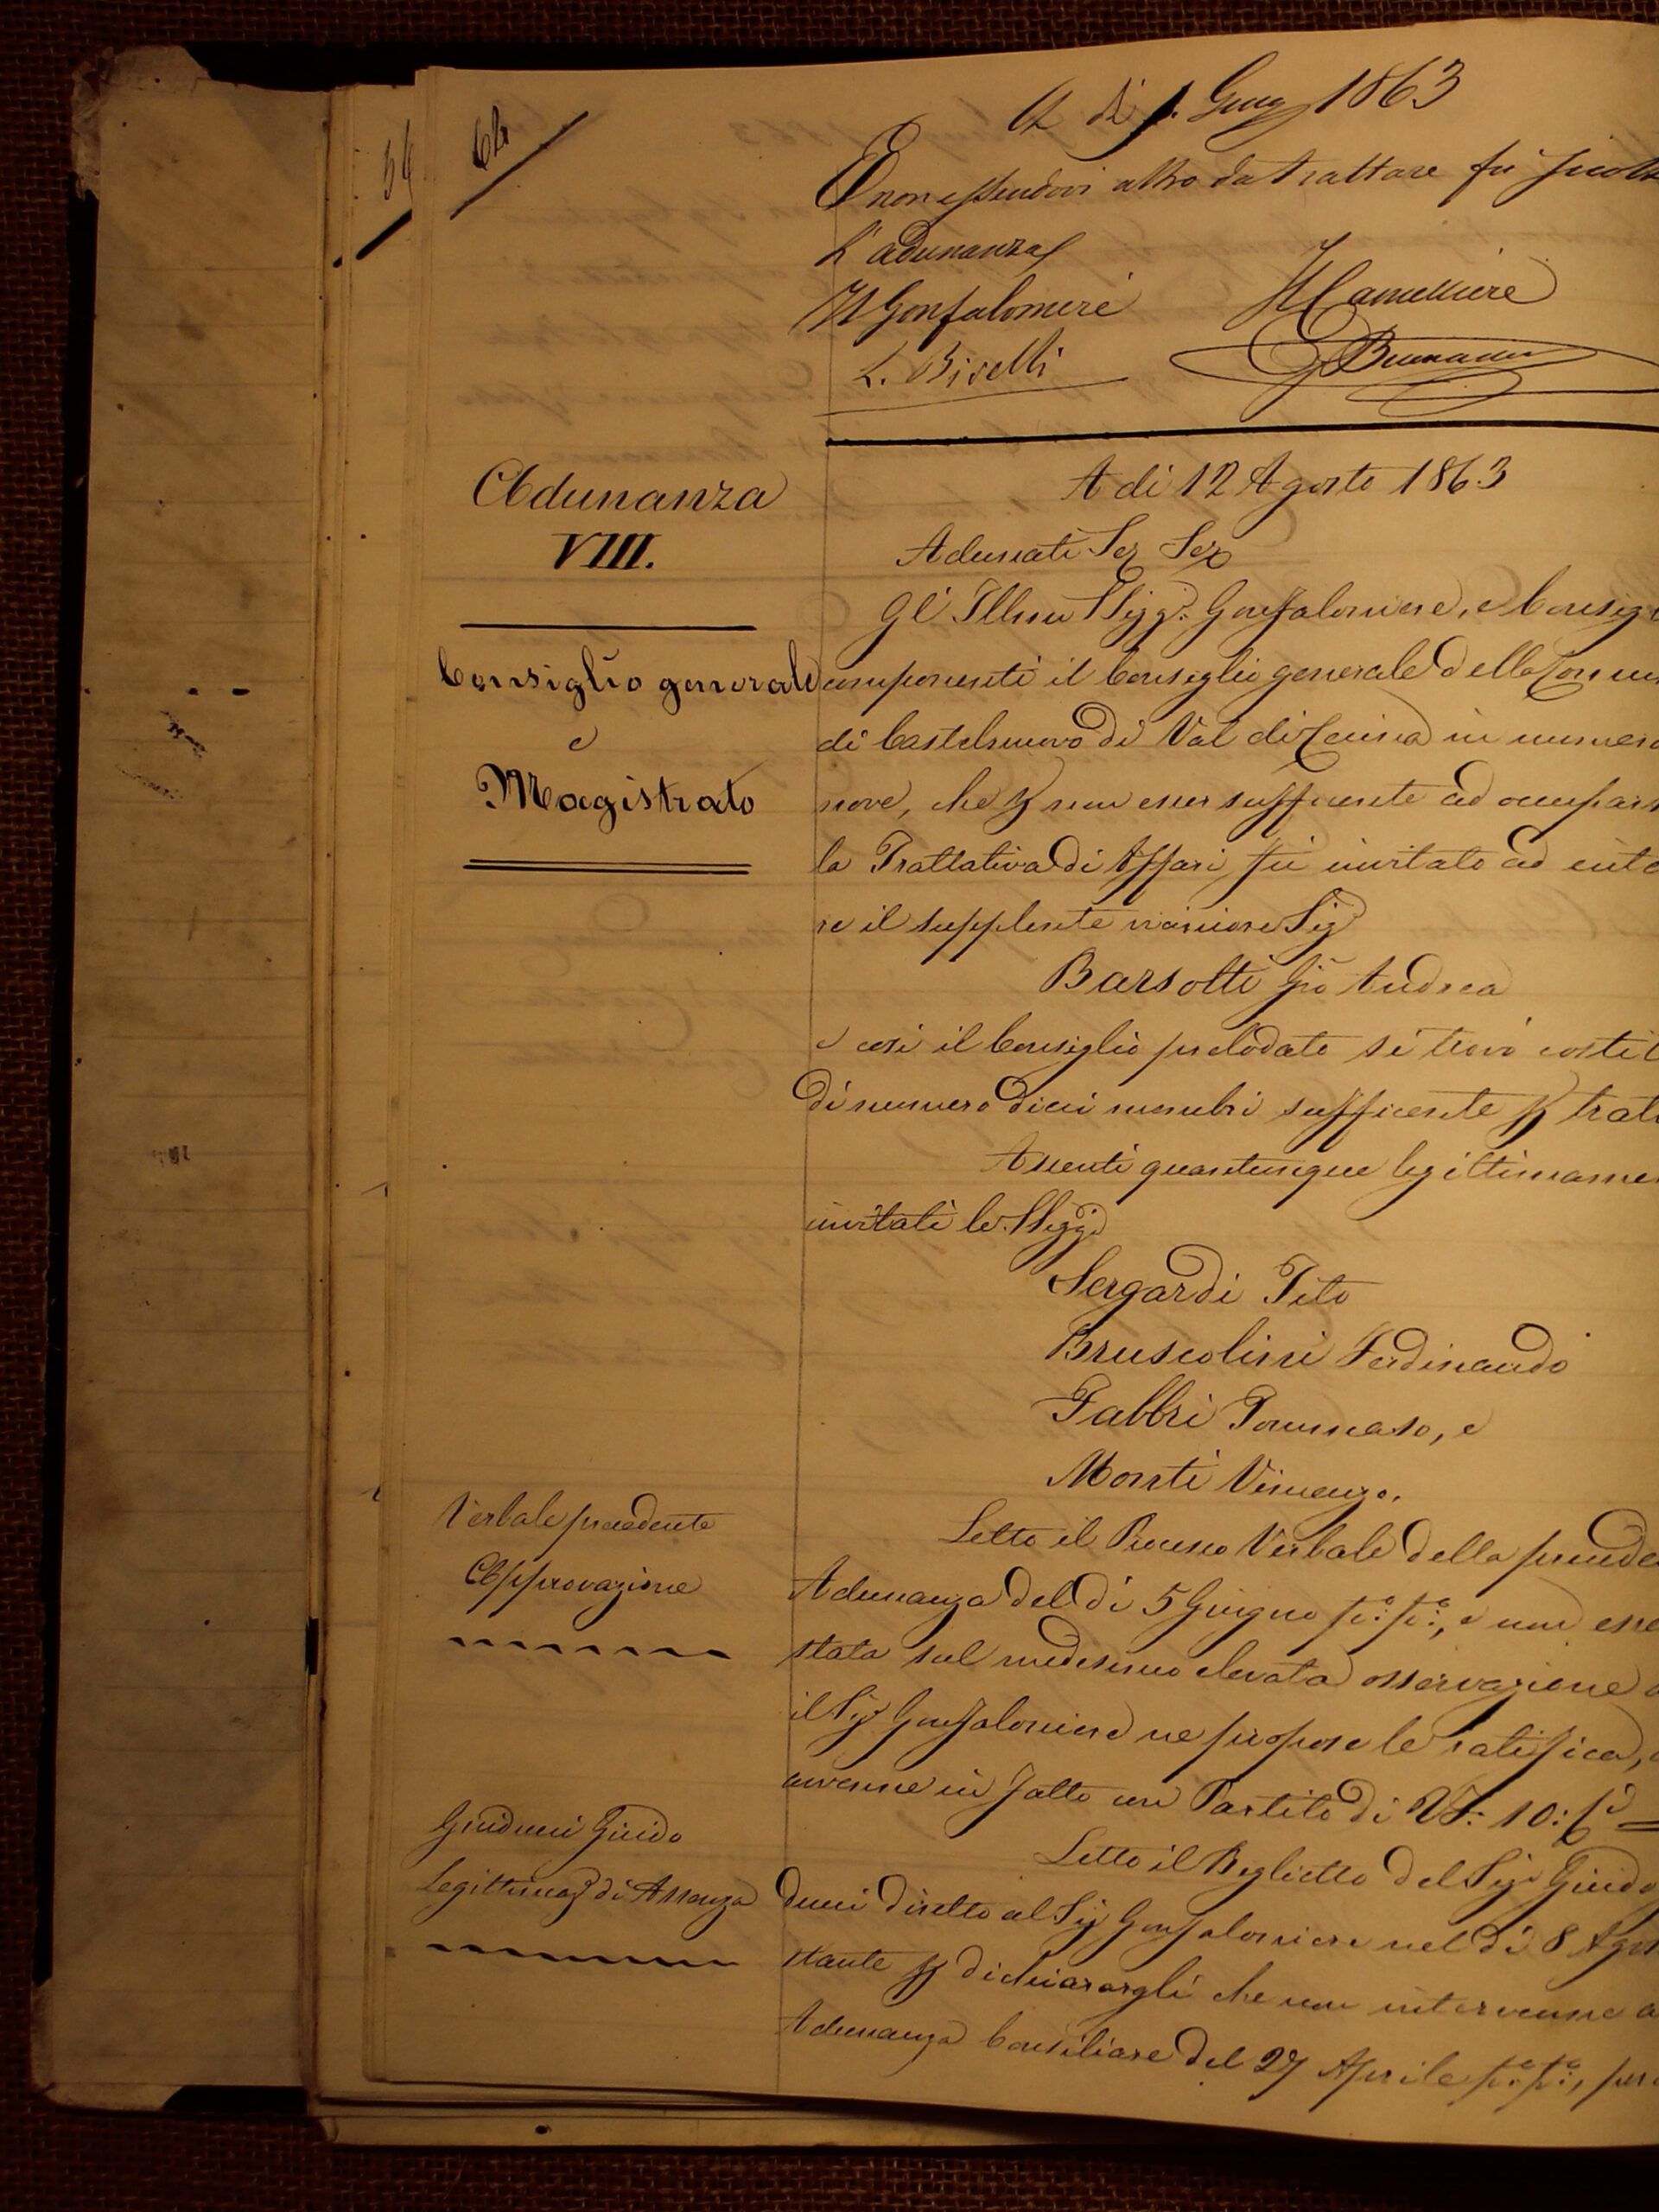 62
A dì 5. Giug 1863
E non essendovi altro da trattare fu sciolta
l'adunanza
Il Gonfaloniere
Il Cancelliere
L. Biselli
Adunanza
VIII.
A dì 12 Agosto 1863
Adunati Ser Ser
Gl' Illmi SSigg.ri Gonfaloniere, e Consigl
Consiglio generale
e
Magistrato
componenti il Consiglio generale della Comun
di Castelnuovo di Val di Cecina in numero
nove, che p non esser sufficente ad occupars
la Trattativa di Affari fu invitato ad inte
re il supplente viciniore Sig
Barsotti Gio Andrea
e così il Consiglio prelodato si trovò costit
di numero dieci membri sufficente p tratt
Assenti quantunque legittimame
invitati le SSigg
Sergardi Tito
Bruscolini Ferdinando
Fabbri Tommaso, e
Monti Vincenzo.
Verbale precedente
Approvazione
Letto il Processo Verbale della precede
Adunanza del dì 5 Giugno p.o p.o, e non esse
stata sul medesimo elevata osservazione
il Sig Gonfaloniere ne propose le ratifica,
avvenne in fatto con Partito di VF: 10:
Guiducci Guido
Legittimaz di Assenza
Letto il Biglietto del Sig Guido
ducci diretto al Sig Gonfaloniere nel dì 8 Agos
stante p dichiarargli che non intervenne a
Adunanza Consiliare del 27 Aprile p.o p.o, per